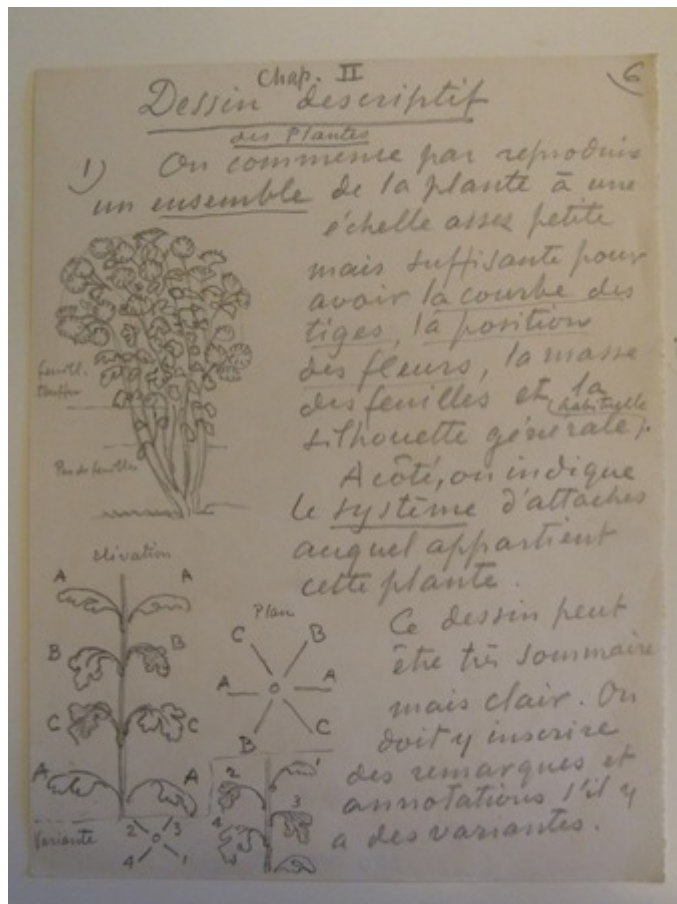 Chap. II
6
Dessin descriptif
des Plantes
1) On commence par reproduire
un ensemble de la plante à une
échelle assez petite
mais suffisante pour
avoir la courbe des
tiges, la position
des fleurs, la masse
des feuilles et la
(habituelle
silhouette générale).
A côté, on indique
le système d'attaches
auquel appartient
cette plante.
Ce dessin peut
être très sommaire
mais clair. On
doit y inscrire
des remarques et
annotations s'il y
a des variantes.
Pas de feuilles
élévation
A A
B B
C C
A A
Plan
C B
A A
B C
Variante
2 3
4 1
2 1
4 3